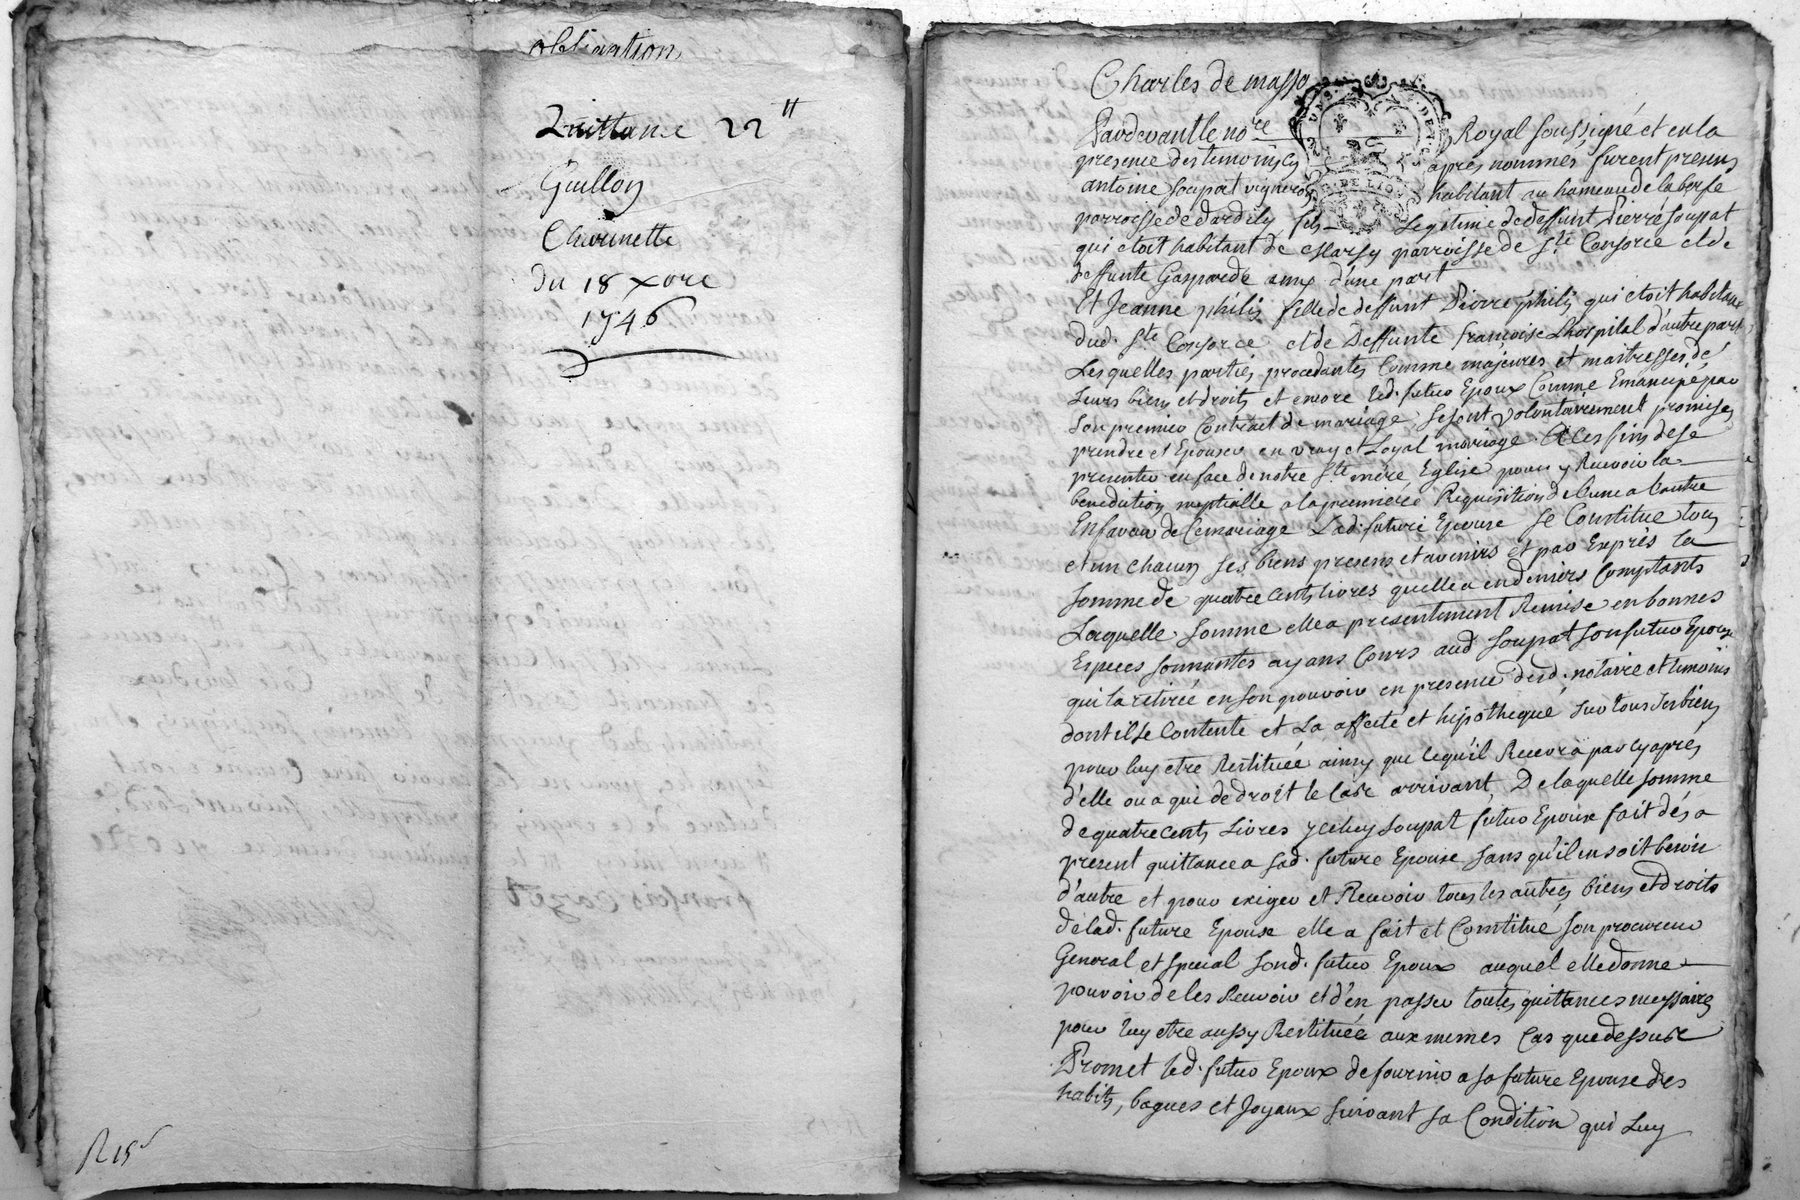 obligation
Quittance 22 ₶
Guillon
Chorinette
du 18 Xbre
1746
R 15 s
Charles de masso
Pardevant le nore Royal soussigné et en la
presence des temoins cy après nommés, furent presens
antoine soupat vigneron habitant au hameau de la berse
parroisse de dardily fils Legitime de deffunt Pierre soupat
qui etoit habitant de Marsy parroisse de Ste Consorce et de
deffunte Gasparde d'une part
Et Jeanne philis fille de deffunt Pierre philis qui etoit habitant
dud. Ste Consorce et de Deffunte françoise Lhospital d'autre part
Lesquelles parties procedantes comme majeures et maitresses de
leurs biens et droits et encore led. futur Epoux comme Emancipé par
son premier contract de mariage se sont volontairement promises
prendre et Epouser en vray et Loyal mariage. A ces fins de se
presenter en face de notre Ste mere Eglise pour y Recevoir la
benediction nuptialle a la premiere Requisition de l'une a l'autre
En faveur de ce mariage Lad. future Epouse se Constitue tous
et un chacun ses biens presens et avenirs et par Exprès la
somme de quatre cents livres quelle a en deniers comptants
Laquelle somme elle a presentement Remise en bonnes
Especes sonnantes ayans cours aud. soupat son futur Epoux
qui la retirée en son pouvoir en presence desd. notaire et temoins
dont il se contente et la affecté et hipothequé sur tous ses biens
pour luy etre Restituée ainsy que ce qu'il Recevra par cy après
d'elle ou a qui de droit le cas arrivant, De laquelle somme
de quatre cents Livres ycelluy soupat futur Epoux fait dés a
present quittance a sad. future Epouse sans qu'il en soit besoin
d'autre et pour exiger et Recevoir tous les autres biens et droits
de lad. future Epouse elle a fait et Constitué son procureur
General et special sond. futur Epoux auquel elle donne
pouvoir de les Recevoir et d'en passer toutes quittances necessaires
pour luy etre aussy Restituée aux memes cas que dessus
Promet led. futur Epoux de fournir a sa future Epouse des
habits, bagues et Joyaux suivant sa Condition qui Luy